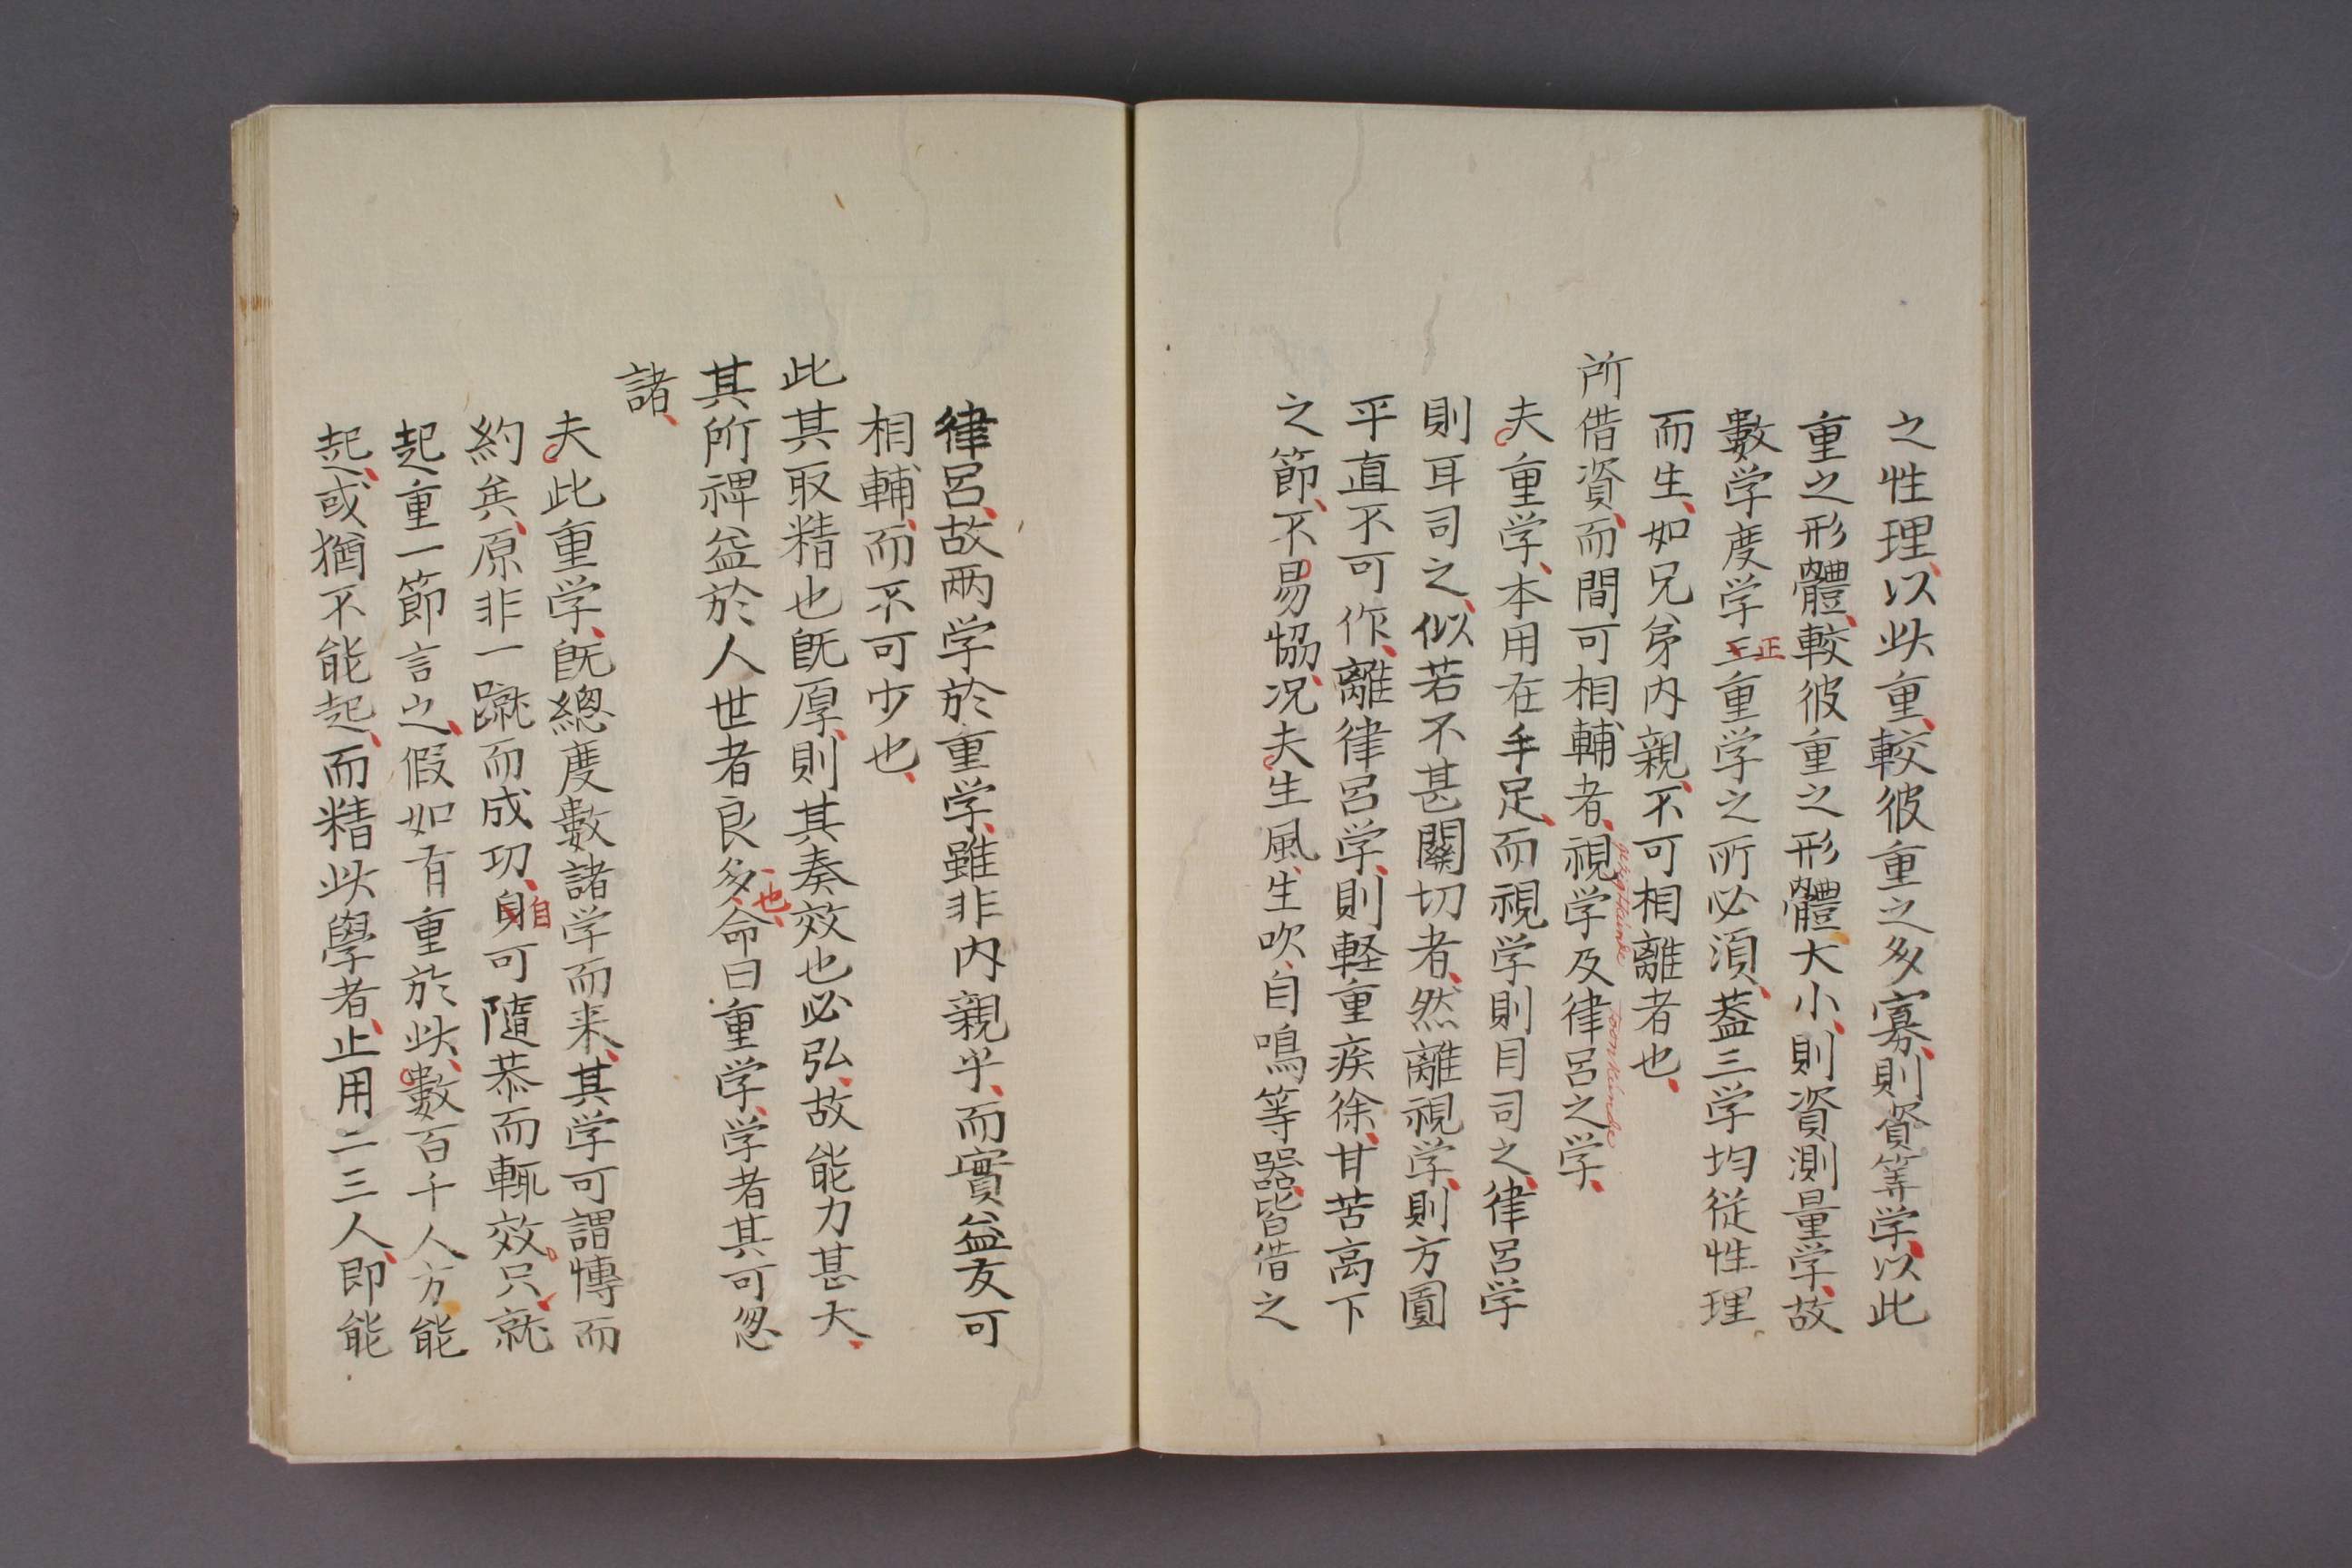 之性理、以此重、較彼重之多寡、則資筭学、以此
重之形體、較彼重之形體大小、則資測量学、故
數学度学三重学之所必湏、葢三学均従性理
正
而生、如兄弟内親、不可相離者也、
所借資、而間可相輔者、視学及律呂之学、
gezigtkunde
toonkunde
夫重学、本用在手足、而視学則目司之、律呂学
則耳司之、似若不甚關切者、然離視学、則方圓
平直不可作、離律呂学、則軽重疾徐、甘苦高下
之節、不易恊、况夫生風、生吹、自鳴等器、皆借之
律呂、故両学於重学、雖非内親乎、而實益友可
相輔、而不可少也、
此其取精也旣厚、則其奏效也必弘、故能力甚大、
其所裨益於人世者良多、命曰重学、学者其可忽
也、
諸、
夫此重学、旣總度數諸学而来、其学可謂慱而
約矣、原非一蹴而成功、身可隨恭而輒效只、就
自
起重一節言之、假如有重於此、數百千人方能
起、或猶不能起、而精此學者、止用二三人、即能